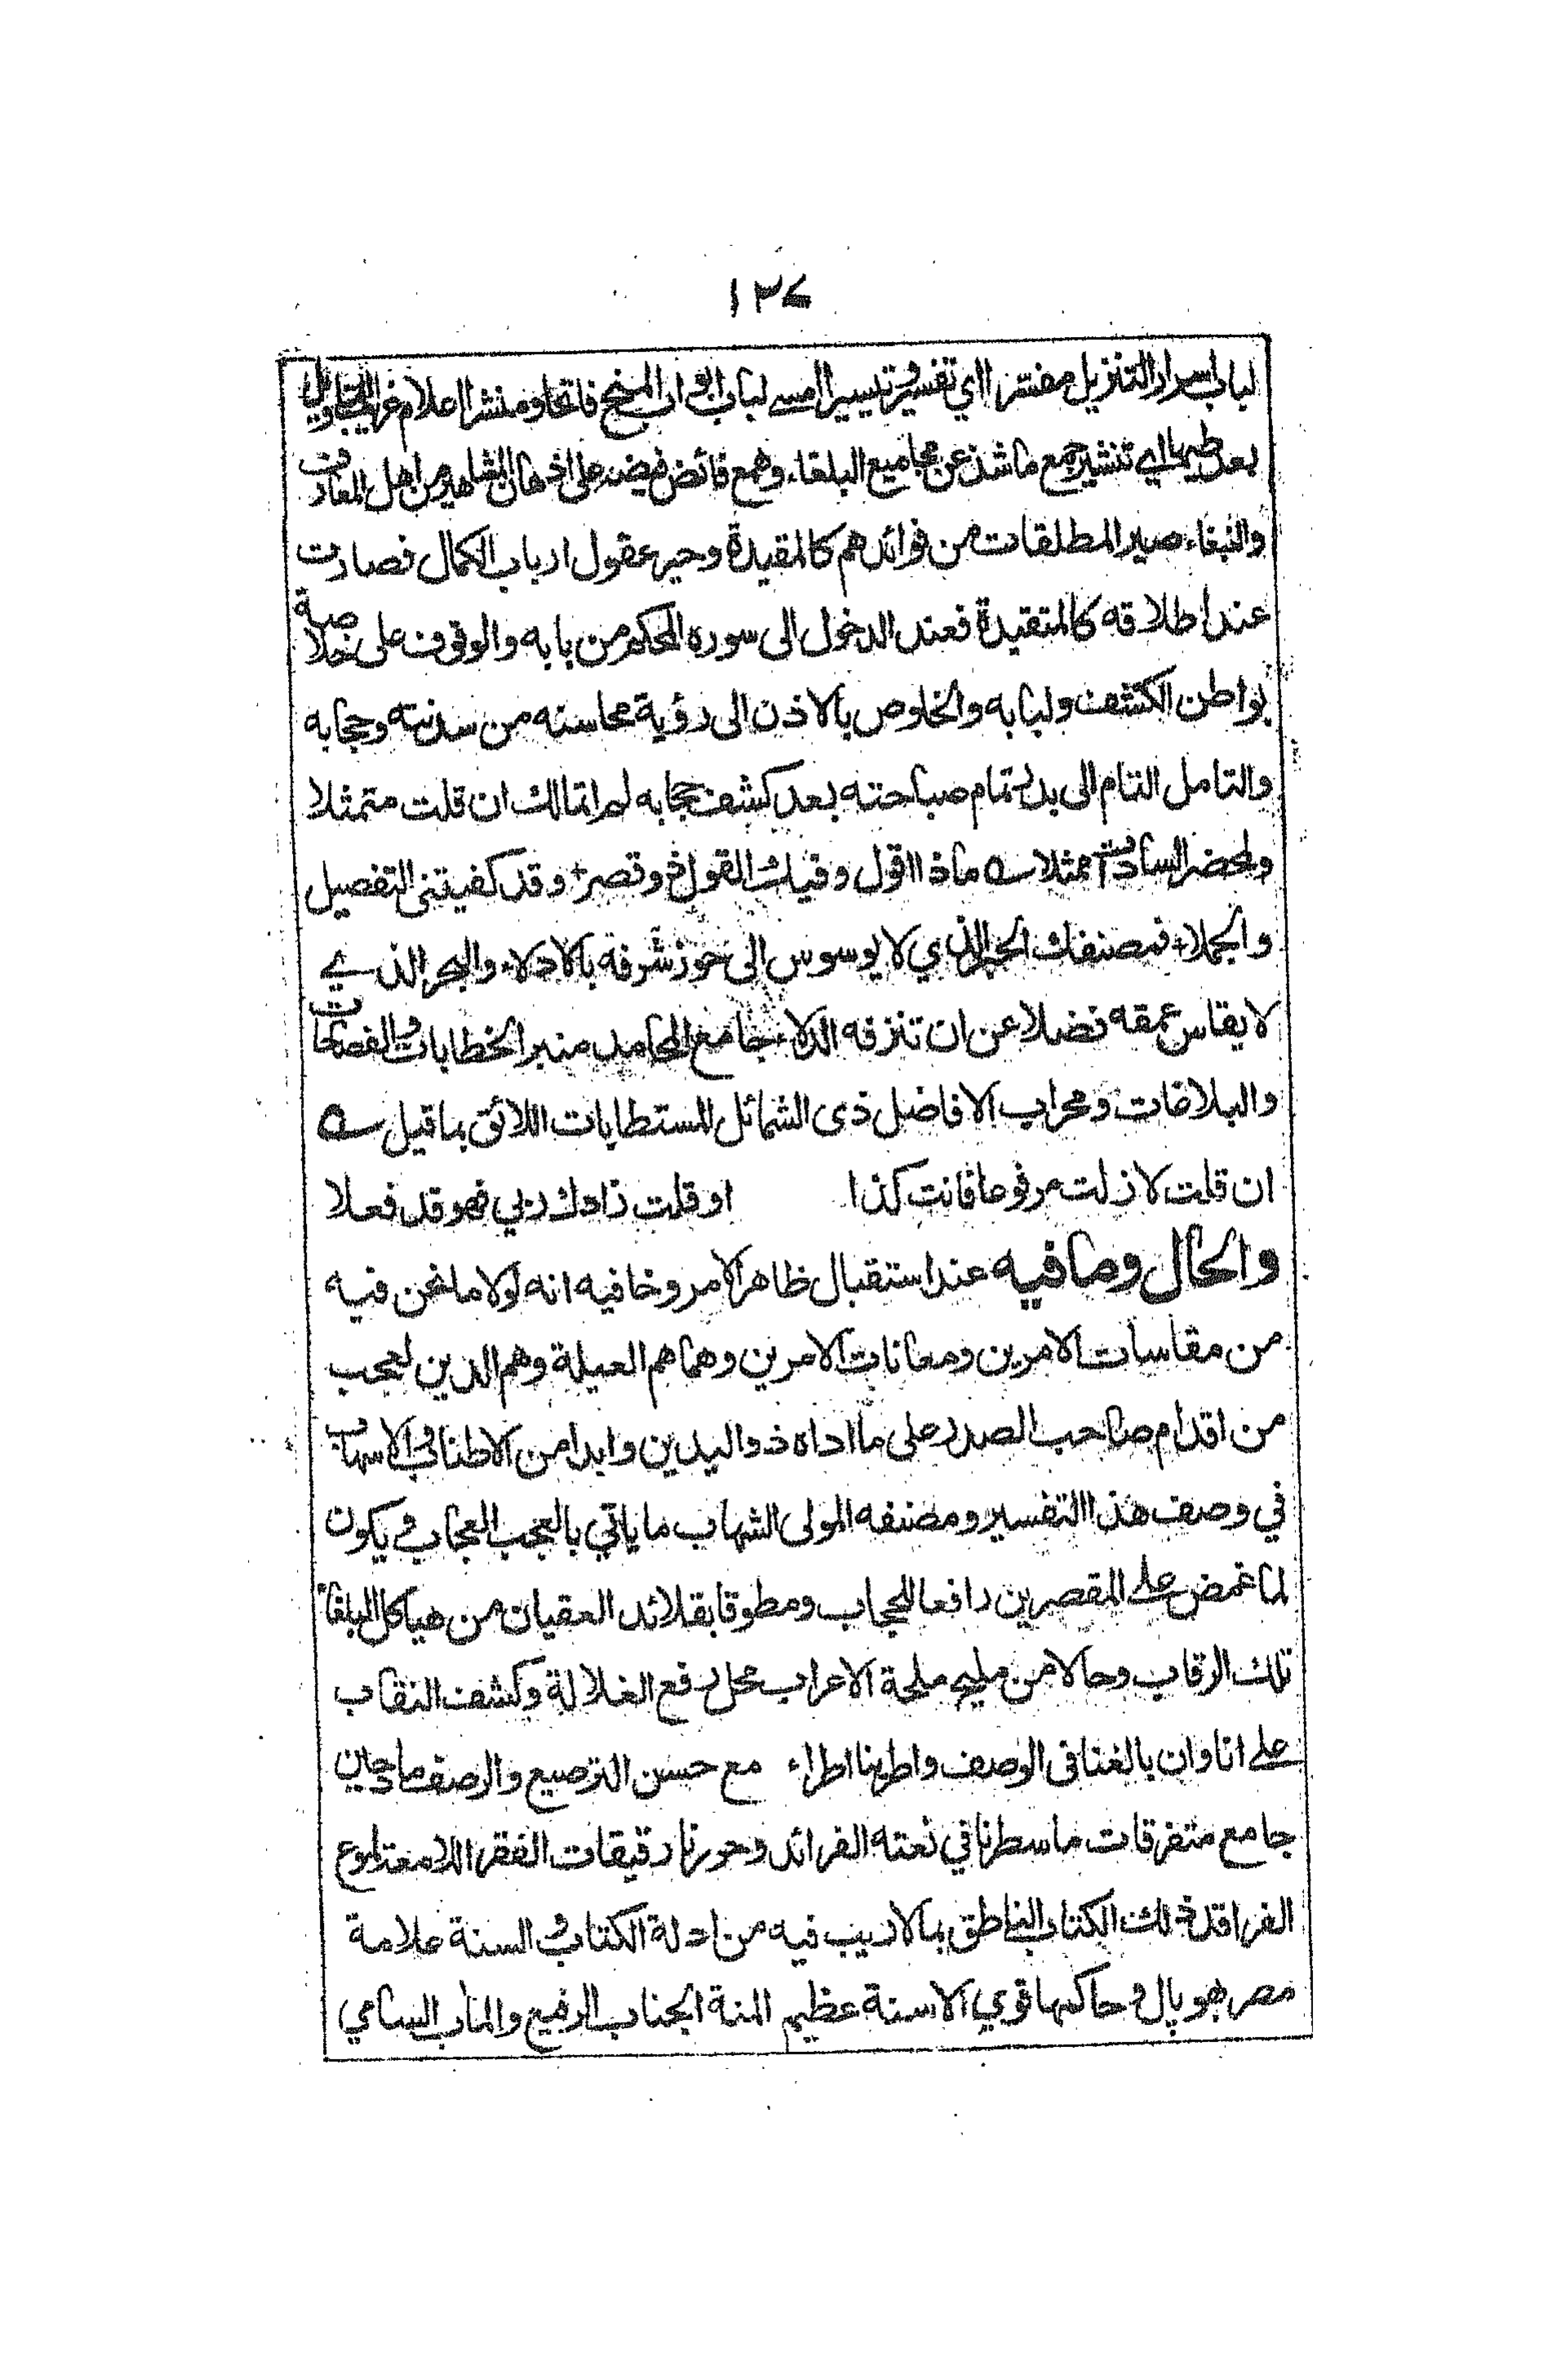 ١٣٧
لباب اسرار التنزيل مفسرا اي تفسير وتيسيرا امسى لباب ابواب المنح فاتحا ومنشرا اعلام غرائب التاويل
بعد طيها اي تنشير جمع ما شذ عن مجاميع البلغاء وهمع فائض فيضه على اذهان المشاهير من اهل المعارف
والنبغاء صير المطلقات من فوائدهم كالمقيدة وحير عقول ارباب الكمال فصارت
عند اطلاقه كالمتقيدة فعند الدخول الى سوره المحكم من بابه والوقوف على خلاصة
بواطن الكشف ولبابه والخلوص بالاذن الى رؤية محاسنه من سدنته وحجابه
والتامل التام الى بدر تمام صباحته بعد كشف حجابه لم اتمالك ان قلت متمثلا
ولمحضر السادات ممثلا ؎ ماذا اقول وفيك القول ذو قصر + وقد كفيتنى التفصيل
والجملا + فمصنفك الحبر الذي لا يوسوس الى حوز شرفه بالادلاء والبحر الذي
لا يقاس عمقه فضلا عن ان تنزفه الدلاء جامع المحامد منبر الخطابات والفصاحات
والبلاغات ومحراب الافاضل ذى الشمائل المستطابات اللائق بما قيل ؎
ان قلت لا زلت مرفوعا فانت كذا او قلت زادك ربي فهو قد فعلا
والحال وما فيه عند استقبال ظاهر الامر وخافيه انه لولا ما نحن فيه
من مقاسات الامرين ومعانات الامرين وهما هم العيلة وهم الدين لعجب
من اقدام صاحب الصدر على ما اداه ذو اليدين وابدا من الاطناب والاسهاب
في وصف هذا التفسير ومصنفه المولى الشهاب ما ياتي بالعجب العجاب ويكون
لما غمض على المقصرين رافعا للحجاب ومطوقا بقلائد العقيان من هياكل البلغاء
تلك الرقاب وحالا من مليح ملحة الاعراب محل رفع الغلالة وكشف النقاب
على انا وان بالغنا فى الوصف واطرينا اطراء مع حسن الترصيع والرصف مادحين
جامع متفرقات ما سطرنا في نعته الفرائد وحررنا دقيقات الفقر اللامعة لموع
الفراقد فذلك الكتاب الناطق بما لا ريب فيه من ادلة الكتاب والسنة علامة
مصر هوپال وحاكمها قوي الاسنة عظيم المنة الجناب الرفيع والماب السامي